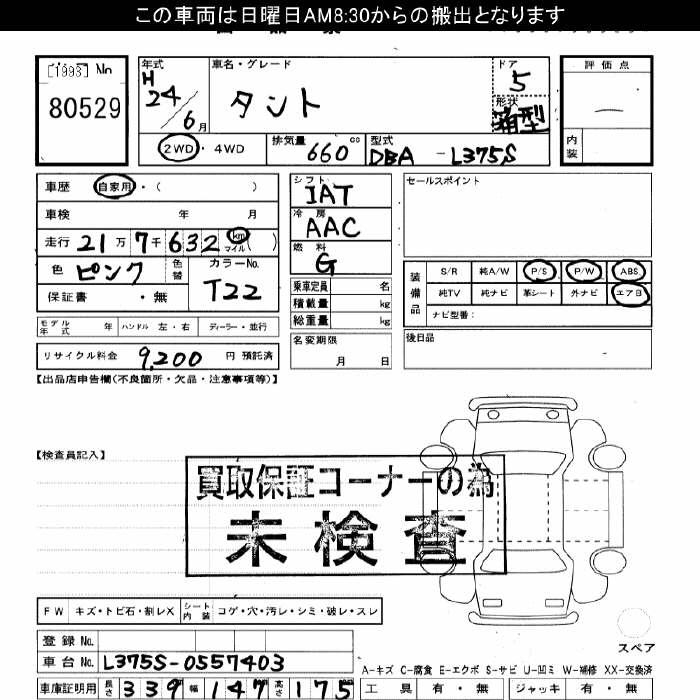 この車両は日曜日AM8:30からの搬出となります
[1993] No
80529
年式
H
24
6月
車名・グレード
タント
ドア
5
形状
箱型
評価点
—
内装
2WD ・ 4WD
排気量
660 cc
型式
DBA - L375S
車歴 自家用・( )
車検 年 月
走行 21万7千632 km マイル ( )
色 ピンク
色替
カラーNo.
T22
保証書 ・無
モデル年式 年 ハンドル 左・右 ディーラー・並行
リサイクル料金 9,200 円 預託済
シフト
IAT
冷房
AAC
燃料
G
乗車定員 名
積載量 kg
総重量 kg
名変期限
月 日
セールスポイント
装備品
S/R 純A/W P/S P/W ABS
純TV 純ナビ 革シート 外ナビ エアB
ナビ型番：
後日品
【出品店申告欄(不良箇所・欠品・注意事項等)】
【検査員記入】
買取保証コーナーの為
未検査
FW キズ・トビ石・割レX シート内装 コゲ・穴・汚レ・シミ・破レ・スレ
登録 No.
車台 No. L375S-0557403
車庫証明用 長さ 339 幅 147 高さ 175
スペア
A-キズ C-腐食 E-エクボ S-サビ U-凹ミ W-補修 XX-交換済
工具 有・無 ジャッキ 有・無